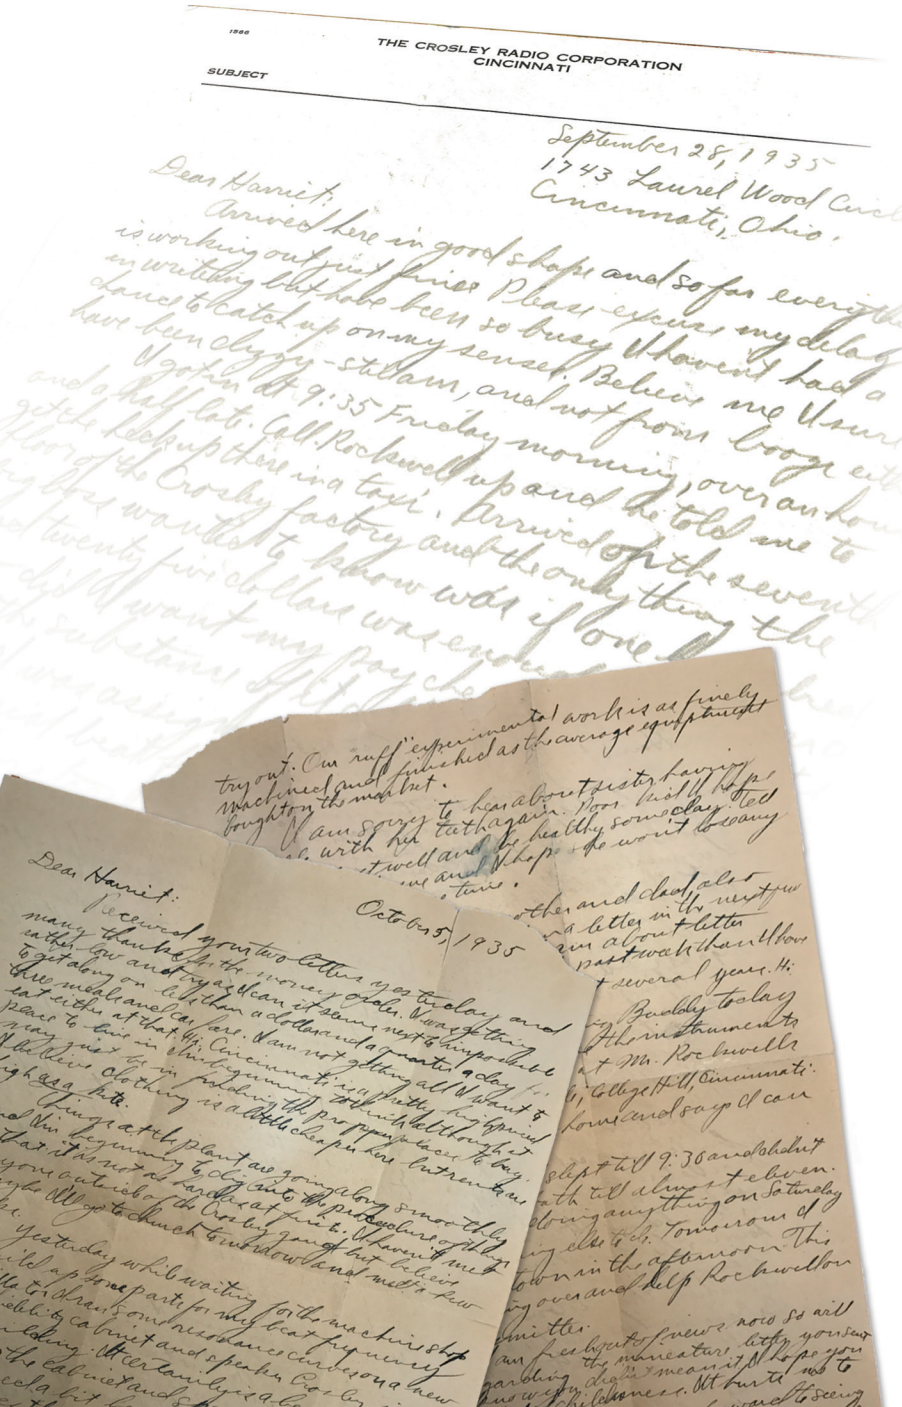 1566
THE CROSLEY RADIO CORPORATION
CINCINNATI
SUBJECT
September 28, 1935
1743 Laurel Wood Circl
Cincinnati, Ohio.
Dear Harriet:
Arrived here in good shape and so far everythi
is working out just fine. Please excuse my delay
in writing but have been so busy I haven't had a
chance to catch up on my senses. Believe me I sure
have been dizzy-steam, and not from booze eith
I got in at 9:35 Friday morning, over an hour
and a half late. Call Rockwell up and he told me to
get the heck up there in a taxi. Arrived on the seventh
floor of the Crosley factory and the only thing the
big boss wanted to know was if one
twenty five dollars was enough
did I want my pay che
the substance
was assig
try out. Our "ruff" experimental work is as finely
machined and finished as the average equiptment
bought on the market.
I am sorry to hear about sister having
with her tuth again. Poor kid I hope
well and be healthy someday. Tell
me and I hope she won't lose any
time.
other and dad, also
a letter in the next few
am about letter
past week than I have
several years. Hi
Buddy today
the instruments
at Mr. Rockwells
College Hill, Cincinnati.
home and says I can
slept till 9:30 and didn't
till almost eleven.
doing anything on Saturday
else to do. Tomorrow I
town in the afternoon. This
over and help Rockwell on
mitter.
am fresh out of news now so will
garding the minature betty you sent
know you didn't mean it. I hope you
childishness. It hurts me to
ward to seeing
October 5, 1935
Dear Harriet:
Received your two letters yesterday and
many thanks for the money order. I was getting
rather low and try as I can it seems next to impossible
to get along on less than a dollar and a quarter a day for
three meals and car fare. I am not getting all I want to
eat either at that. Hi. Cincinnati is a pretty high priced
peace to live in I'm beginning to think although it
may just be in finding the propper places to buy.
I believe clothing is a little cheaper here but rents are
high as a kite.
Things at the plant are going along smoothly
and I'm beginning to dig into the procedure of things
that it is not as hard as at first. I haven't met
anyone outside of the Crosley gang but believe
maybe I'll go to church tomorrow and meet a few
Yesterday while waiting for the machine shop
build up some parts for my beat frequency
to draw some resonance curves on a new
fidelity cabinet and speaker Crosley
building. It certainly is a
the cabinet and
a bit